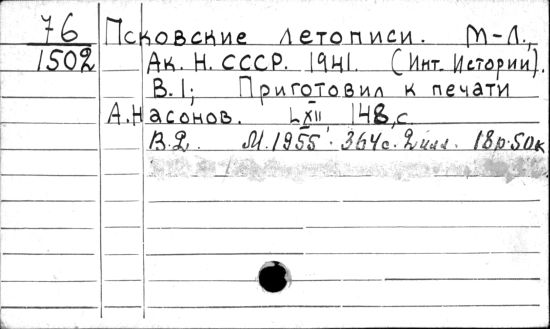 76
1502
Псковские летописи. М-Л.,
Ак. Н. СССР. 1941. (Инт. Истории).
В.1; Приготовил к печати
А. Насонов. LXII 148,с
В.2. М. 1955. 364с. 2 илл. 18р.50к